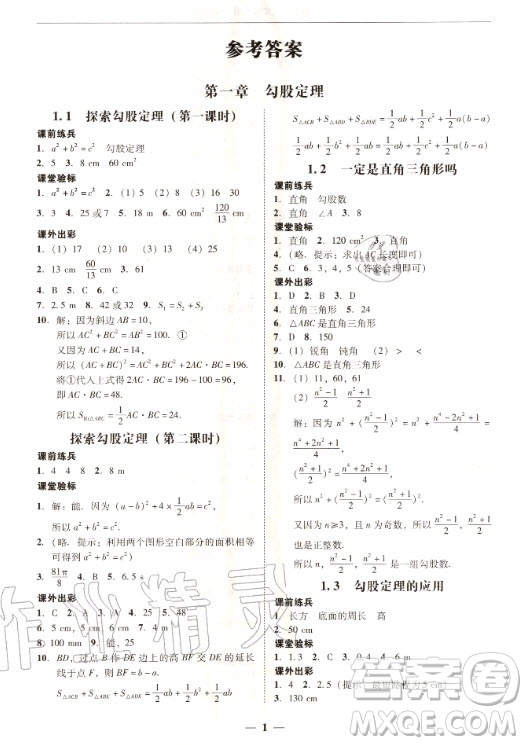 参考答案
第一章 勾股定理
1.1 探索勾股定理（第一课时）
课前练兵
1. a²+b²=c² 勾股定理
2. 5 3. 8 cm 60 cm²
课堂验标
1. a²+b²=c² 2. (1) 5 (2) 8 (3) 16
3. 30 4. 25 或 7 5. D 6. 60 cm² 120/13
课外出彩
1. (1) 17 (2) 9 (3) 24
2. 13 cm 60/13 cm 3. B 4. D 5. C 6. D
7. 2.5 m 8. 42 或 32 9. S₁+S₂=S₃
10. 解：因为斜边 AB=10，
所以 AC²+BC²=100①.
又因为 AC+BC=14，
所以 (AC+BC)²=AC²+BC²+2AC·BC=196.
将①代入上式得 2AC·BC=196-100=96，
即 AC·BC=48.
所以 S Rt△ABC=1/2 AC·BC=24.
探索勾股定理（第二课时）
课前练兵
1. 4 4 8 2. 8 m
课堂验标
1. 解：能. 因为 (a-b)²+4×1/2 ab=c²，
所以 a²+b²=c².
2.（略. 提示：利用两个图形空白部分的面积相等可得到）
3. 81π/8 4. B 5. B 6. 6.5 s
课外出彩
1. C 2. A 3. A 4. D 5. 49 6. 25 7. 5 m
8. 100 mm 9. 解：能.
10. BD，过点 B 作 DE 边上的高 BF 交 DE 的延长
线于点 F，则 BF=b-a
S△ACB+S△ABE+S△ADE=1/2 ab+1/2 b²+1/2 ab
S△ACB+S△ABD+S△BDE=1/2 ab+1/2 c²+1/2 a(b-a)
1/2 ab+1/2 b²+1/2 ab=1/2 ab+1/2 c²+1/2 a(b-a)
1.2 一定是直角三角形吗
课前练兵
1. 直角 勾股数
2. 直角 ∠A 3. 90°
课堂验标
1. 直角 2. 120 cm² 3. 直角
4.（略. 提示：求出 AC 长度即可）
5. C 6. 4，3，5（答案合理即可）
课外出彩
1. D 2. B 3. D 4. D 5. 直角
6. △ABC 是直角三角形
7. D 8. 150
9. (1) 锐角 钝角 (2) > <
10. △ABC 是直角三角形
11. (1) 11，60，61
(2) (n²-1)/2 (n²+1)/2
解：因为 n²+((n²-1)/2)²=n²+(n⁴-2n²+1)/4=
(n⁴+2n²+1)/4，
((n²+1)/2)²=(n⁴+2n²+1)/4，
所以 n²+((n²-1)/2)²=((n²+1)/2)².
又因为 n≥3，且 n 为奇数，所以
也是正整数.
所以 n，(n²-1)/2，(n²+1)/2 是一组勾股数.
1.3 勾股定理的应用
课前练兵
1. 长方 底面的周长 高
2. 50 cm
课堂验标
1. 1.3 2. C 3. 30 cm 4. 24
课外出彩
1. 4 2. 2.5
3. 130 cm
1
作业精灵
答案圈
MXQE.COM